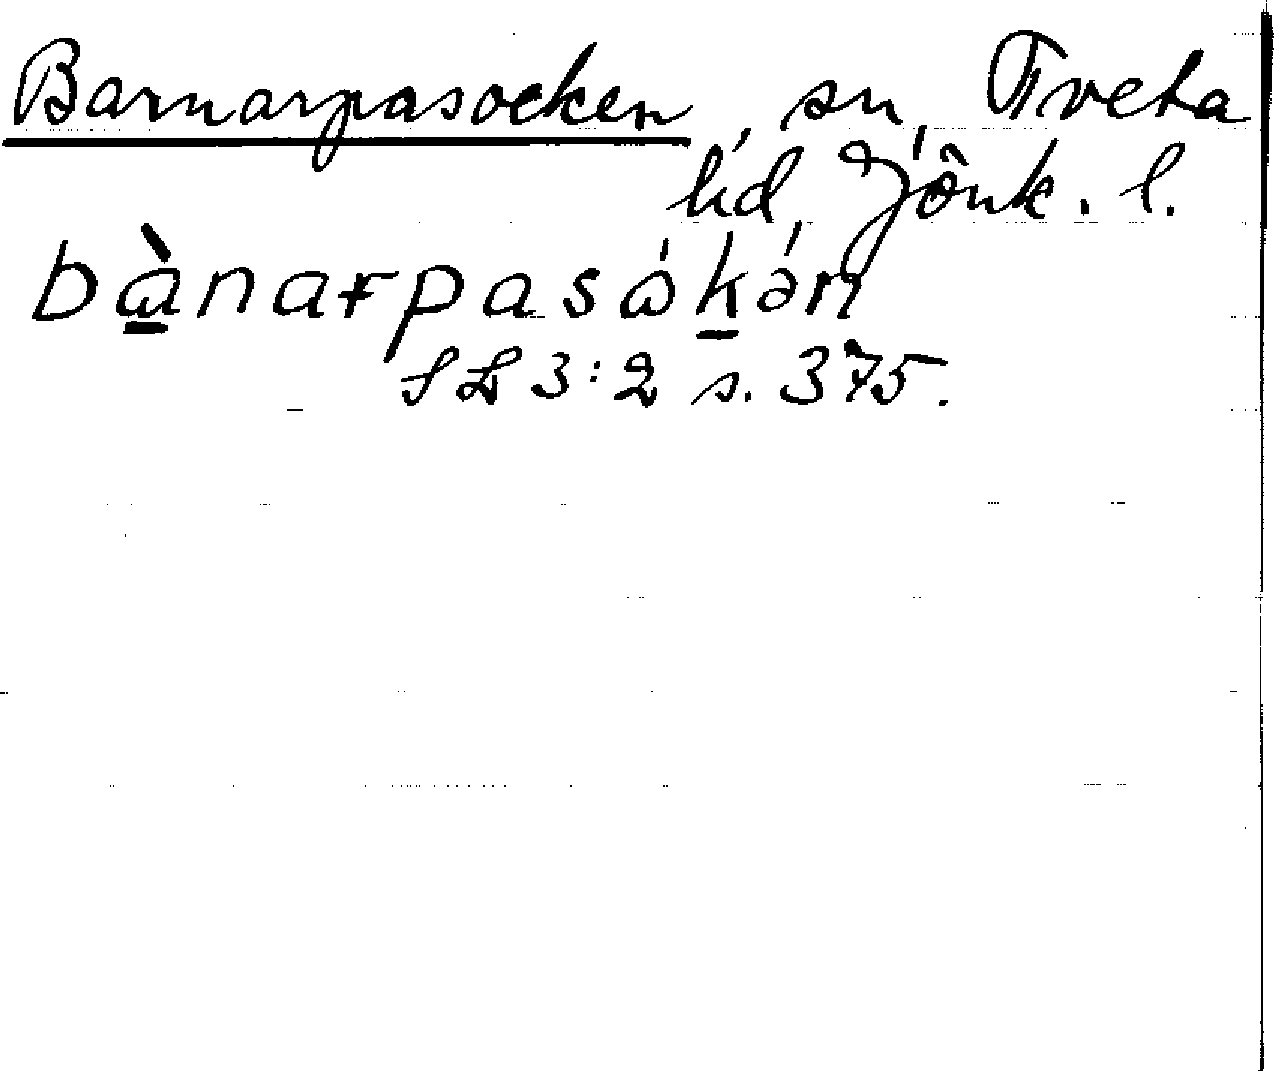 Barnarpasocken, sn, Tveta
hd, Jönk. l.
bànarpasókə́n
SL 3:2 s. 375.